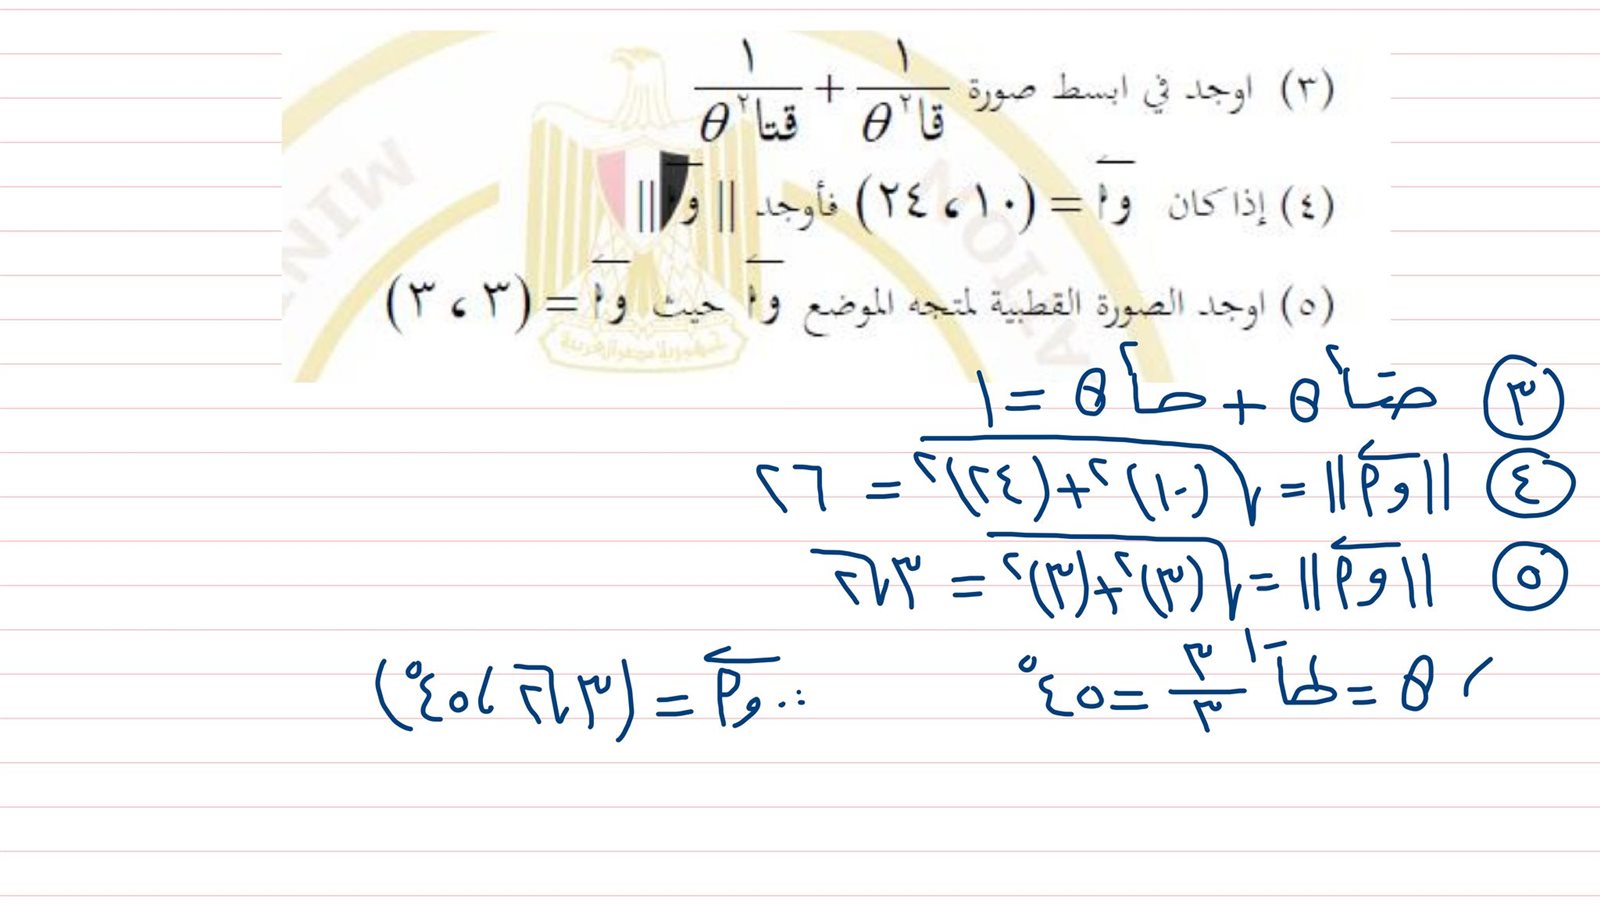 (٣) اوجد في ابسط صورة ١/قا٢θ + ١/قتا٢θ
(٤) إذا كان وأ = (١٠ ، ٢٤) فأوجد || وأ ||
(٥) اوجد الصورة القطبية لمتجه الموضع وأ حيث وأ = (٣ ، ٣)
٣ حتا٢ θ + حا٢ θ = ١
٤ ||وم|| = √(١٠)٢+(٢٤)٢ = ٢٦
٥ ||وم|| = √(٣)٢+(٣)٢ = ٣√٢
، θ = طا-١ ٣/٣ = ٤٥° ∴ وم = (٣√٢ ، ٤٥°)